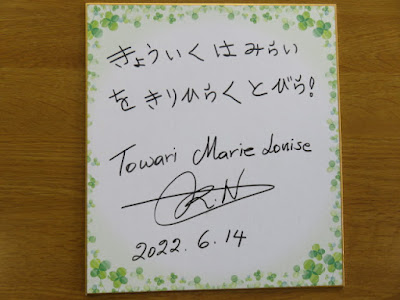 きょういくはみらい
をきりひらくとびら!
Towari Marie Louise
R.N
2022.6.14